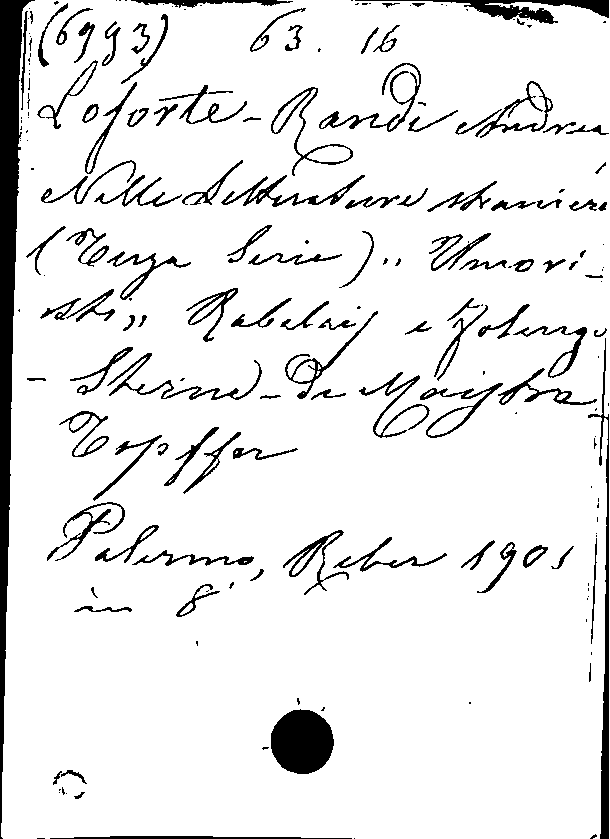 (6993) 63. 16
Loforte-Randi Andrea
Nelle Letterature straniere
(Terza Serie) „ Umori-
sti „ Rabelais e Folengo
- Sterne - De Maistre -
Topffer
Palermo, Reber 1901
in 8°